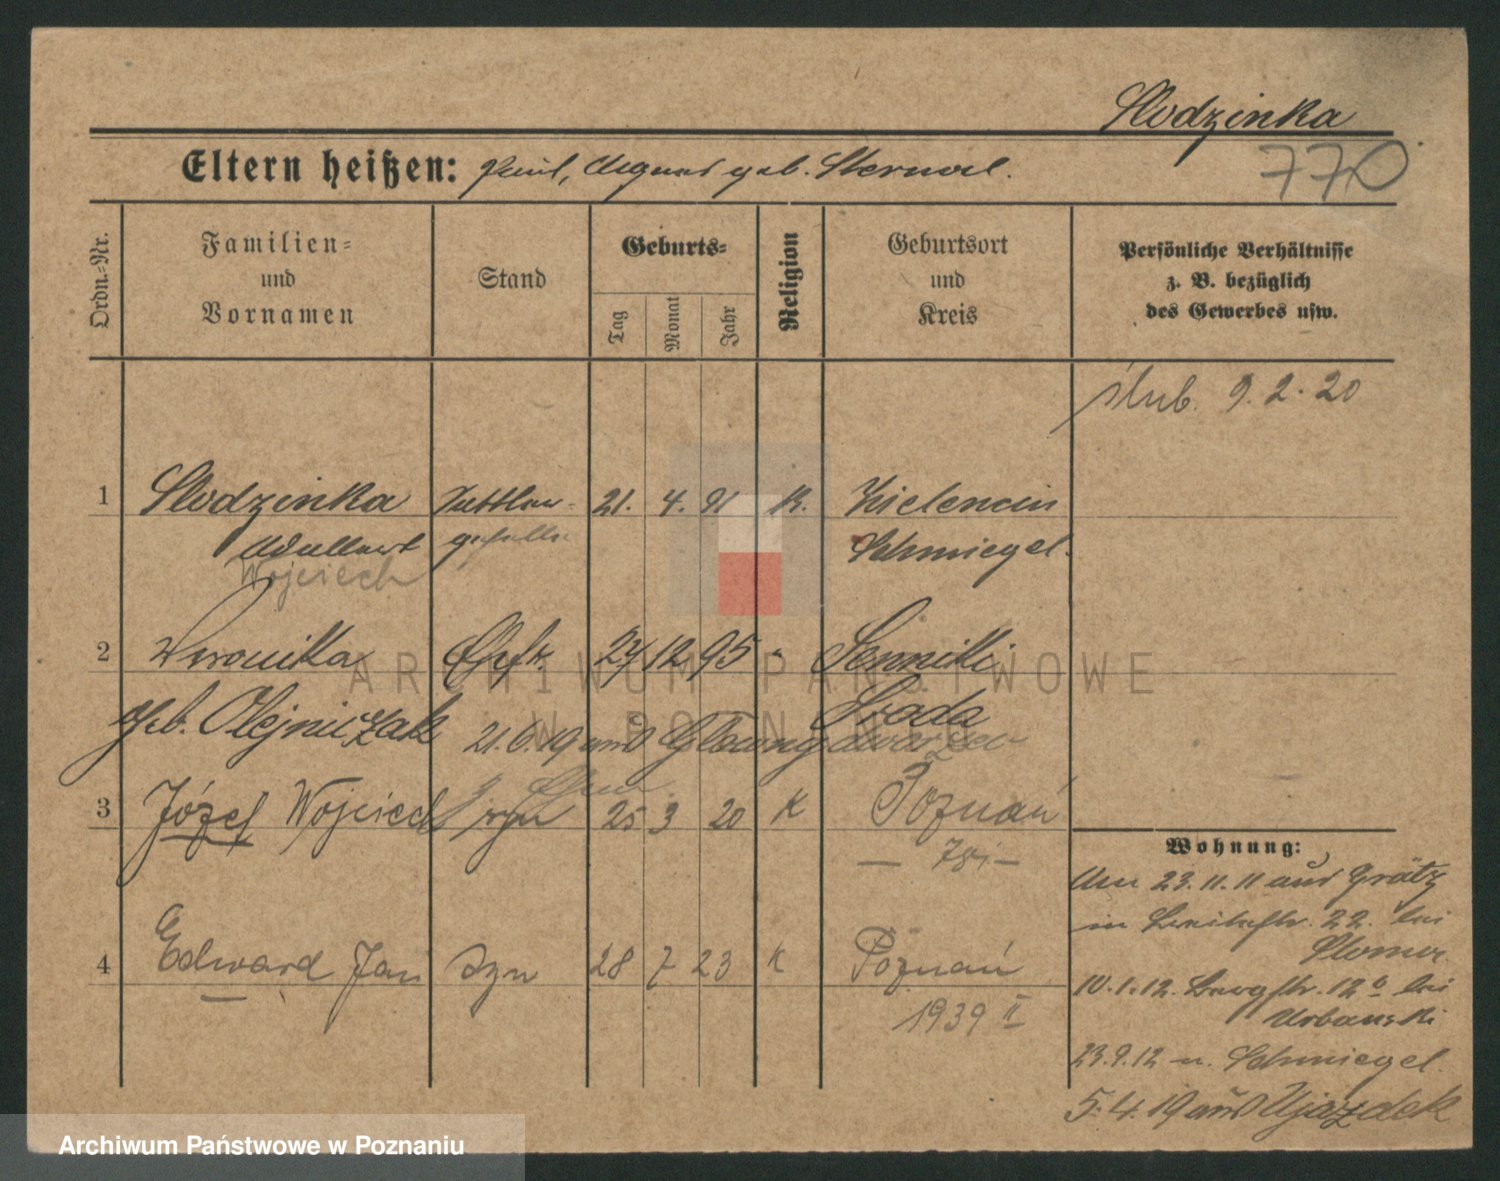 Slodzinka
770
Eltern heißen: Paul, Agnes geb.
Ordn.-Nr.
Familien=
und
Vornamen
Stand
Geburts=
Tag
Monat
Jahr
Religion
Geburtsort
und
Kreis
Persönliche Verhältnisse
z. B. bezüglich
des Gewerbes usw.
ślub. 9. 2. 20
1 Slodzinka Sattler- 21. 4. 91 K. Zielencin
Adalbert geselle Schmiegel.
Wojciech
2 Weronika Ehefr. 27 12 95 " Sennitki
geb. Olejniczak Sroda
21. 6. 19 aus
3 Józef Wojciech syn 25 3 20 K Poznań
4 Edward Jan syn 28 7 23 K Poznań
1939 II
Wohnung:
Am 23. 11. 11 aus Grätz
in 22. bei
10. 1. 12. Bergstr. 12b bei
Urbanski
23. 9. 12 n. Schmiegel.
5. 4. 19 aus Ujazdek
ARCHIWUM PAŃSTWOWE
W POZNANIU
Archiwum Państwowe w Poznaniu